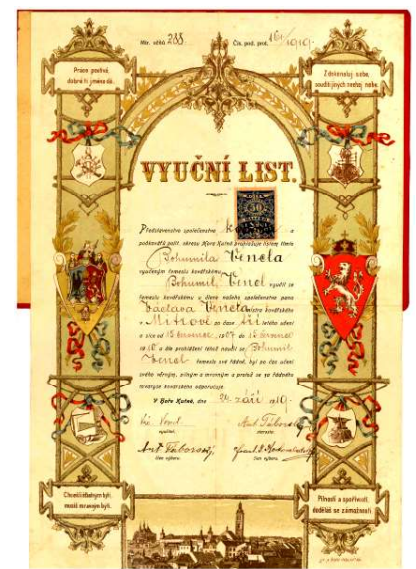 Mtr. učňů 288. Čís. pod. prot. 161/1919.
Práce poctivá
dobré ti jméno dá.
Zdokonaluj sebe,
VYUČNÍ LIST.
Představenstvo společenstva a
podkovářů polit. okresu Hora Kutná prohlašuje tímto
Bohumila Vencla
vyučeným řemeslu kovářskému
Bohumil Vencl vyučil se
řemeslu kovářskému u člena našeho společenstva pana
Václava Vencla mistra kovářského
v po čase tří letého učení
a sice od 15 července 1907 do 15 července
1910 a dle prohlášení téhož naučil se Bohumil
Vencl řemeslu své řádně, byl po čas učení
svého věrným, pilným a mravným a pročež se za řádného
tovaryše kovářského odporučuje.
V Hoře Kutné, dne 26. září 1919.
Vencl Ant. Táborský
vyučitel. starosta.
Ant. Táborský,
člen výboru. člen výboru.
Chceš-li šťastným býti,
musíš mravným býti.
Pilností a spořivostí
doděláš se zámožnosti.